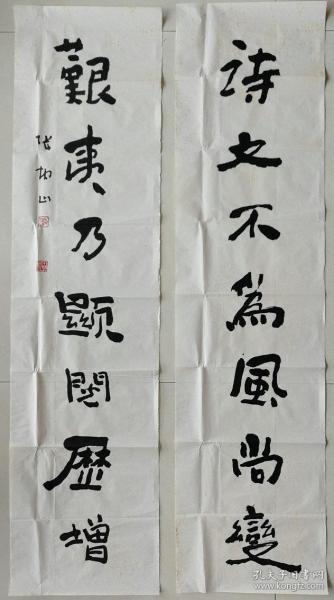 詩文不為風尚變
艱夷乃顯閱歷增
孔夫子旧书网